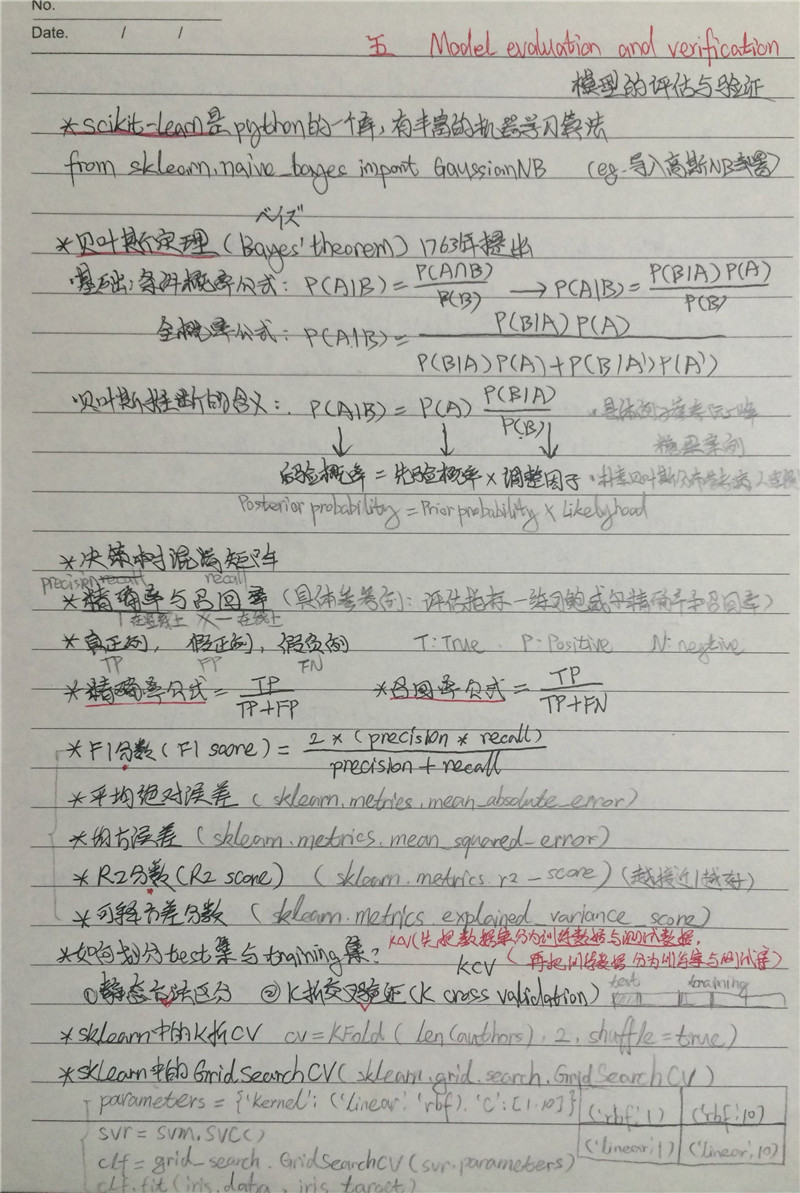 No.
Date. / /
五 Model evaluation and verification
模型的评估与验证
*scikit-learn是python的一个库,有丰富的机器学习算法
from sklearn.naive_bayes import GaussianNB (eg.导入高斯NB
ベイズ
*贝叶斯定理(Bayes' theorem) 1763年提出
基础:条件概率公式: P(A|B)= P(A∩B)/P(B) → P(A|B)= P(B|A)P(A)/P(B)
全概率公式: P(A|B)= P(B|A)P(A)/P(B|A)P(A)+P(B|A')P(A')
贝叶斯推断的含义: P(A|B)= P(A) P(B|A)/P(B)
↓ ↓ ↓
后验概率=先验概率×调整因子
Posterior probability = Prior probability × Likelyhood
*决策树混淆矩阵
precision recall recall
*精确率与召回率(具体参考例:评估指标—练习鲍威尔精确率和召回率)
*真正例, 假正例, 假负例 T:True P:Positive N:negtive
TP FP FN
*精确率公式= TP/TP+FP *召回率公式= TP/TP+FN
*F1分数(F1 score)= 2*(precision*recall)/precision+recall
*平均绝对误差(sklearn.metrics.mean_absolute_error)
*均方误差(sklearn.metrics.mean_squared_error)
*R2分数(R2 score) (sklearn.metrics.r2_score)(越接近1越好)
*可释方差分数(sklearn.metrics.explained_variance_score)
*如何划分test集与training集?
KCV(先把数据集分为训练数据与测试数据,
KCV (再把训练数据分为训练集与测试集)
①静态方法区分 ②K折交叉验证(K cross validation) test training
*sklearn中的K折CV cv=KFold(len(authors),2,shuffle=true)
*sklearn中的GridSearchCV(sklearn.grid_search.GridSearchCV)
parameters={'kernel':('linear','rbf'),'C':[1,10]} ('rbf',1) ('rbf',10)
svr=svm.SVC() ('linear',1) ('linear',10)
clf=grid_search.GridSearchCV(svr,parameters)
clf.fit(iris.data, iris.target)